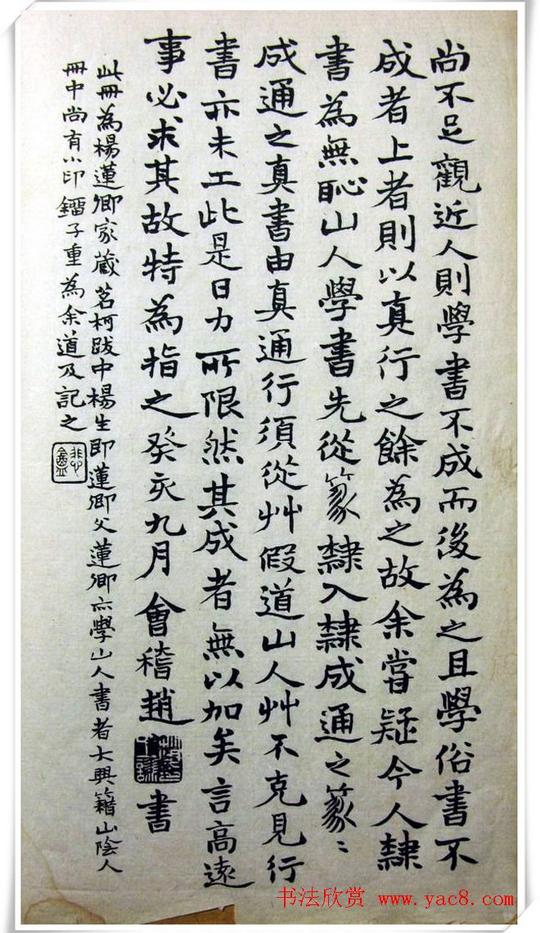 尚不足觀近人則學書不成而後為之且學俗書不
成者上者則以真行之餘為之故余嘗疑今人隸
書為無恥山人學書先從篆隸入隸成通之篆〻
成通之真書由真通行須從艸假道山人艸不克見行
書亦未工此是日力所限然其成者無以加矣言高遠
事必求其故特為指之癸亥九月會稽趙書
此冊為楊蓮卿家藏茗柯跋中楊生即蓮卿父蓮卿亦學山人書者大興籍山陰人
冊中尚有小印鎦子重為余道及記之
书法欣赏 www.yac8.com